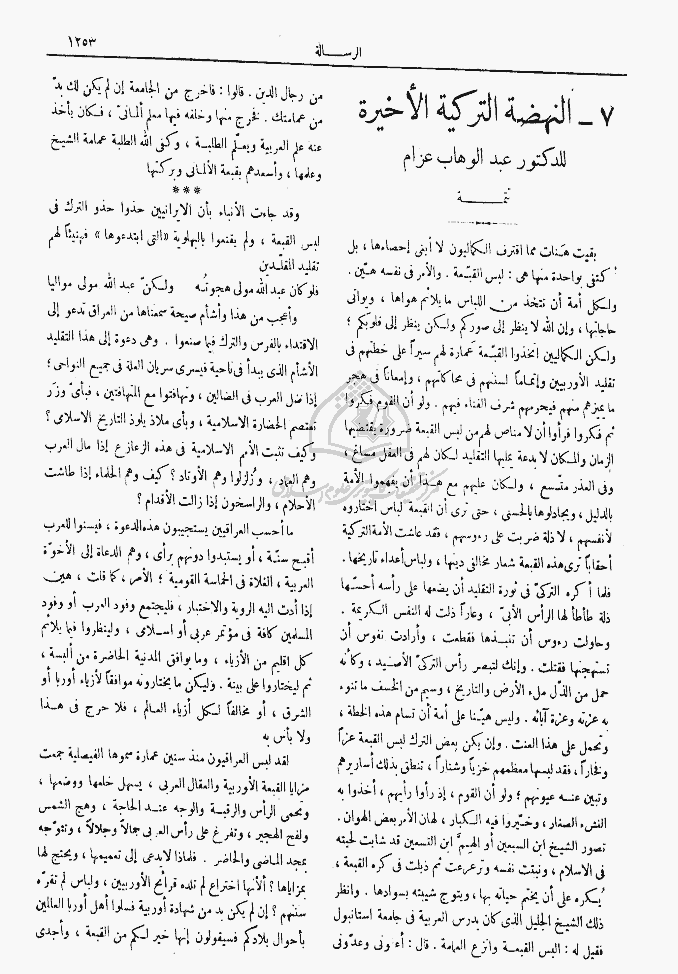 ١٢٥٣
الرسالة
٧ ـ النهضة التركية الأخيرة
للدكتور عبد الوهاب عزام
تتمة
بقيت هنات مما اقترف الكماليون لا أبغى إحصاءها ، بل
أكتفى بواحدة منها هى : لبس القبّعة . والأمر فى نفسه هيّن .
ولكل أمة أن تتخذ من اللباس ما يلائم هواها ، ويواتى
حاجاتها ، وإن الله لا ينظر إلى صوركم ولكن ينظر إلى قلوبكم ؛
ولكن الكماليين اتخذوا القبّعة عَمارة لهم سيراً على خطتهم فى
تقليد الأوربيين وإتماماً لسنتهم فى محاكاتهم ، وإمعاناً فى هجر
ما يميزهم منهم فيحرمهم شرف الفناء فيهم . ولو أن القوم فكروا
ثم فكروا فرأوا أن لا مناص لهم من لبس القبعة ضرورة يقتضيها
الزمان والمكان لا بدعة يمليها التقليد لكان لهم فى العقل مساغ ،
وفى العذر متّسع ، ولكان عليهم مع هذا أن يفهموا الأمة
بالدليل ، ويجادلوها بالحسنى ، حتى ترى أن القبعة لباس اختاروه
لأنفسهم ، لا ذلة ضربت على رءوسهم ، فقد عاشت الأمة التركية
أحقاباً ترى هذه القبعة شعار مخالفى دينها ، ولباس أعداء تاريخها .
فلما أكره التركىّ فى ثورة التقليد أن يضعها على رأسه أحسّها
ذلة طأطأ لها الرأس الأبىّ ، وعاراً ذلت له النفس الكريمة .
وحاولت رءوس أن تنبذها فقطعت ، وأرادت نفوس أن
تستهجنها فقتلت . وإنك لتبصر رأس التركىّ الأصيد ، وكأنه
حمل من الذّل ملء الأرض والتاريخ ، وسيم من الخسف ما تنوء
به عزته وعزة آبائه . وليس هيّنا على أمة أن تسام هذه الخطة ،
وتحمل على هذا العنت . وإن يكن بعض الترك لبس القبعة عزّاً
وفخاراً ، فقد لبسها معظمهم خزياً وشناراً ، تنطق بذلك أساريرهم
وتبين عنه عيونهم ؛ ولو أن القوم ، إذ رأوا رأيهم ، أخذوا به
النشء الصغار ، وخيّروا فيه الكبار ، لهان الأمر بعض الهوان .
تصور الشيخ ابن السبعين أو الهِمَّ ابن التسعين قد شابت لحيته
فى الاسلام ، ونبتت نفسه وترعرعت ثم ذبلت فى كره القبعة ،
يُسكره على أن يختم حياته بها ، ويتوج شيبته بسوادها . وانظر
ذلك الشيخ الجليل الذى كان يدرس العربية فى جامعة استانبول
فقيل له : البس القبعة وانزع العمامة . قال : أعفونى وعدّونى
من رجال الدين . قالوا : فاخرج من الجامعة إن لم يكن لك بدّ
من عمامتك . فخرج منها وخلفه فيها معلم ألمانىّ ، فكان يأخذ
عنه علم العربية ويعلّم الطلبة ، وكفى الله الطلبة عمامة الشيخ
وعلمها ، وأسعدهم بقبعة الألمانى وبركتها
***
وقد جاءت الأنباء بأن الايرانيين حذوا حذو الترك فى
لبس القبعة ، ولم يقنعوا بالبهلوية « التى ابتدعوها » فهنيئاً لهم
تقليد المقلّدين
فلو كان عبد الله مولى هجوتُه ولكنّ عبد الله مولى مواليا
وأعجب من هذا وأشأم صيحة سمعناها من العراق تدعو إلى
الاقتداء بالفرس والترك فيما صنعوا . وهى دعوة إلى هذا التقليد
الأشأم الذى يبدأ فى ناحية فيسرى سريان العلة فى جميع النواحى ؛
إذا ضل العرب فى الضالين ، وتهافتوا مع المتهافتين ، فبأىّ وزَر
تعتصم الحضارة الاسلامية ، وبأى ملاذ يلوذ التاريخ الاسلامى ؟
وكيف تثبت الأمم الاسلامية فى هذه الزعازع إذا مال العرب
وهم العماد ، وزُلزلوا وهم الأوتاد ؟ كيف وهم الحلماء إذا طاشت
الأحلام ، والراسخون إذا زالت الأقدام ؟
ما أحسب العراقيين يستجيبون هذه الدعوة ، فيسنوا للعرب
أقبح سنّة ، أو يستبدوا دونهم برأى ، وهم الدعاة إلى الأخوّة
العربية ، الغلاة فى الحماسة القومية ؛ الأمر ، كما قلت ، هين
إذا أدت اليه الروية والاختبار ، فليجتمع وفود العرب أو وفود
المسلمين كافة فى مؤتمر عربى أو اسلامى ، ولينظروا فيما يلائم
كل اقليم من الأزياء ، وما يوافق المدنية الحاضرة من ألبسة ،
ثم ليختاروا على بينة . وليكن ما يختارونه موافقاً لأزياء أوربا أو
الشرق ، أو مخالفاً لكل أزياء العالم ، فلا حرج فى هذا
ولا بأس به
لقد لبس العراقيون منذ سنين عمارة سموها الفيصلية جمعت
مزايا القبعة الأوربية والعقال العربى ، يسهل خلعها ووضعها ،
وتحمى الرأس والرقبة والوجه عند الحاجة ، وهج الشمس
ولفح الهجير ، وتفرغ على رأس العربى جمالاً وجلالاً ، وتتوّجه
بمجد الماضى والحاضر . فلماذا لا يدعى إلى تعميمها ، ويحتج لها
بمزاياها ؟ ألأنها اختراع لم تلده قرائح الأوربيين ، ولباس لم تقرّه
سنتهم ؟ إن لم يكن بد من شهادة أوربية فسلوا أهل أوربا العالمين
بأحوال بلادكم فسيقولون إنها خير لكم من القبعة ، وأجدى